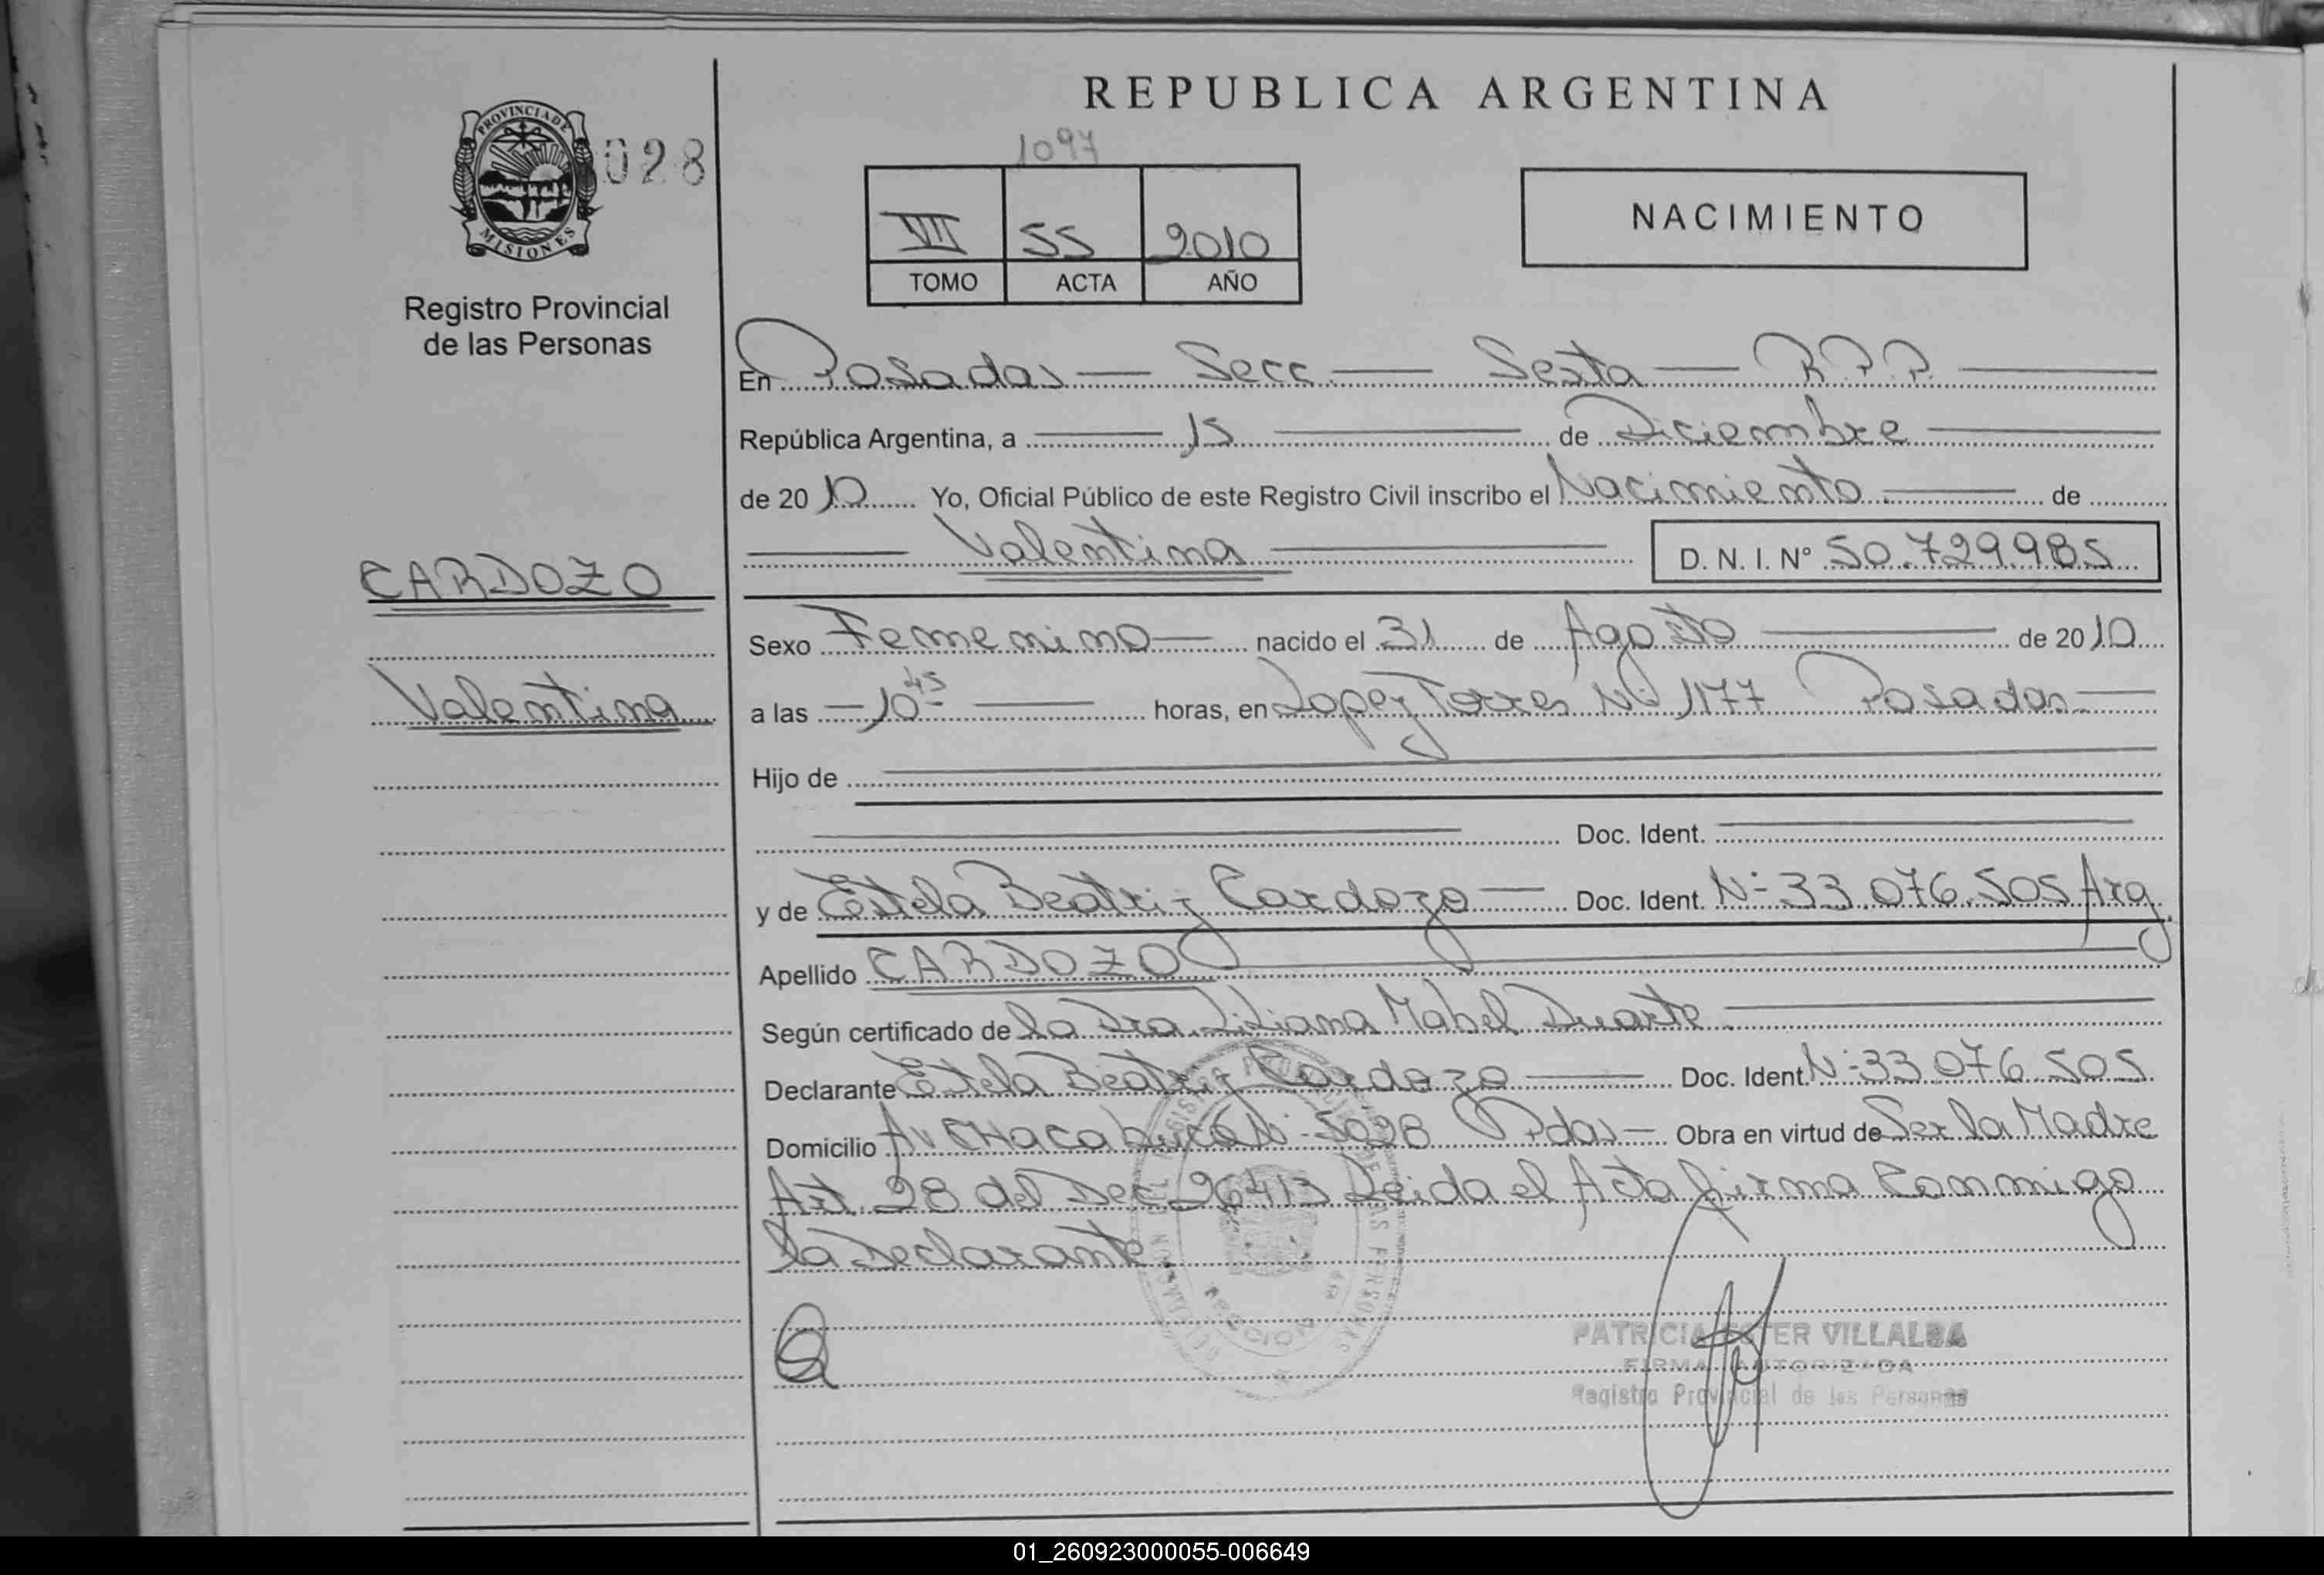 REPUBLICA ARGENTINA
PROVINCIA DE
MISIONES
028
Registro Provincial
de las Personas
1097
VII 55 2010
TOMO ACTA AÑO
NACIMIENTO
En Posadas — Secc. — Sexta — R.P.P. —
República Argentina, a — 15 — de Diciembre —
de 2010 Yo, Oficial Público de este Registro Civil inscribo el Nacimiento — de
— Valentina — D. N. I. Nº 50.729985
CARDOZO
Valentina
Sexo Femenino — nacido el 31 de Agosto — de 2010
a las — 10 45 — horas, en Lopez Torres Nº 1177 Posadas —
Hijo de —
— Doc. Ident. —
y de Estela Beatriz Cardozo — Doc. Ident. Nº 33.076.505 Arg.
Apellido CARDOZO —
Según certificado de la Dra. Liliana Mabel Duarte —
Declarante Estela Beatriz Cardozo — Doc. Ident. Nº 33 076 505
Domicilio Av CHacabuco Nº 5098 Pdas — Obra en virtud de Ser la Madre
Art. 28 del Dec. 26413 Leida el Acta firma Conmigo
la Declarante
PATRICIA ESTER VILLALBA
FIRMA AUTORIZADA
Registro Provincial de las Personas
01_260923000055-006649